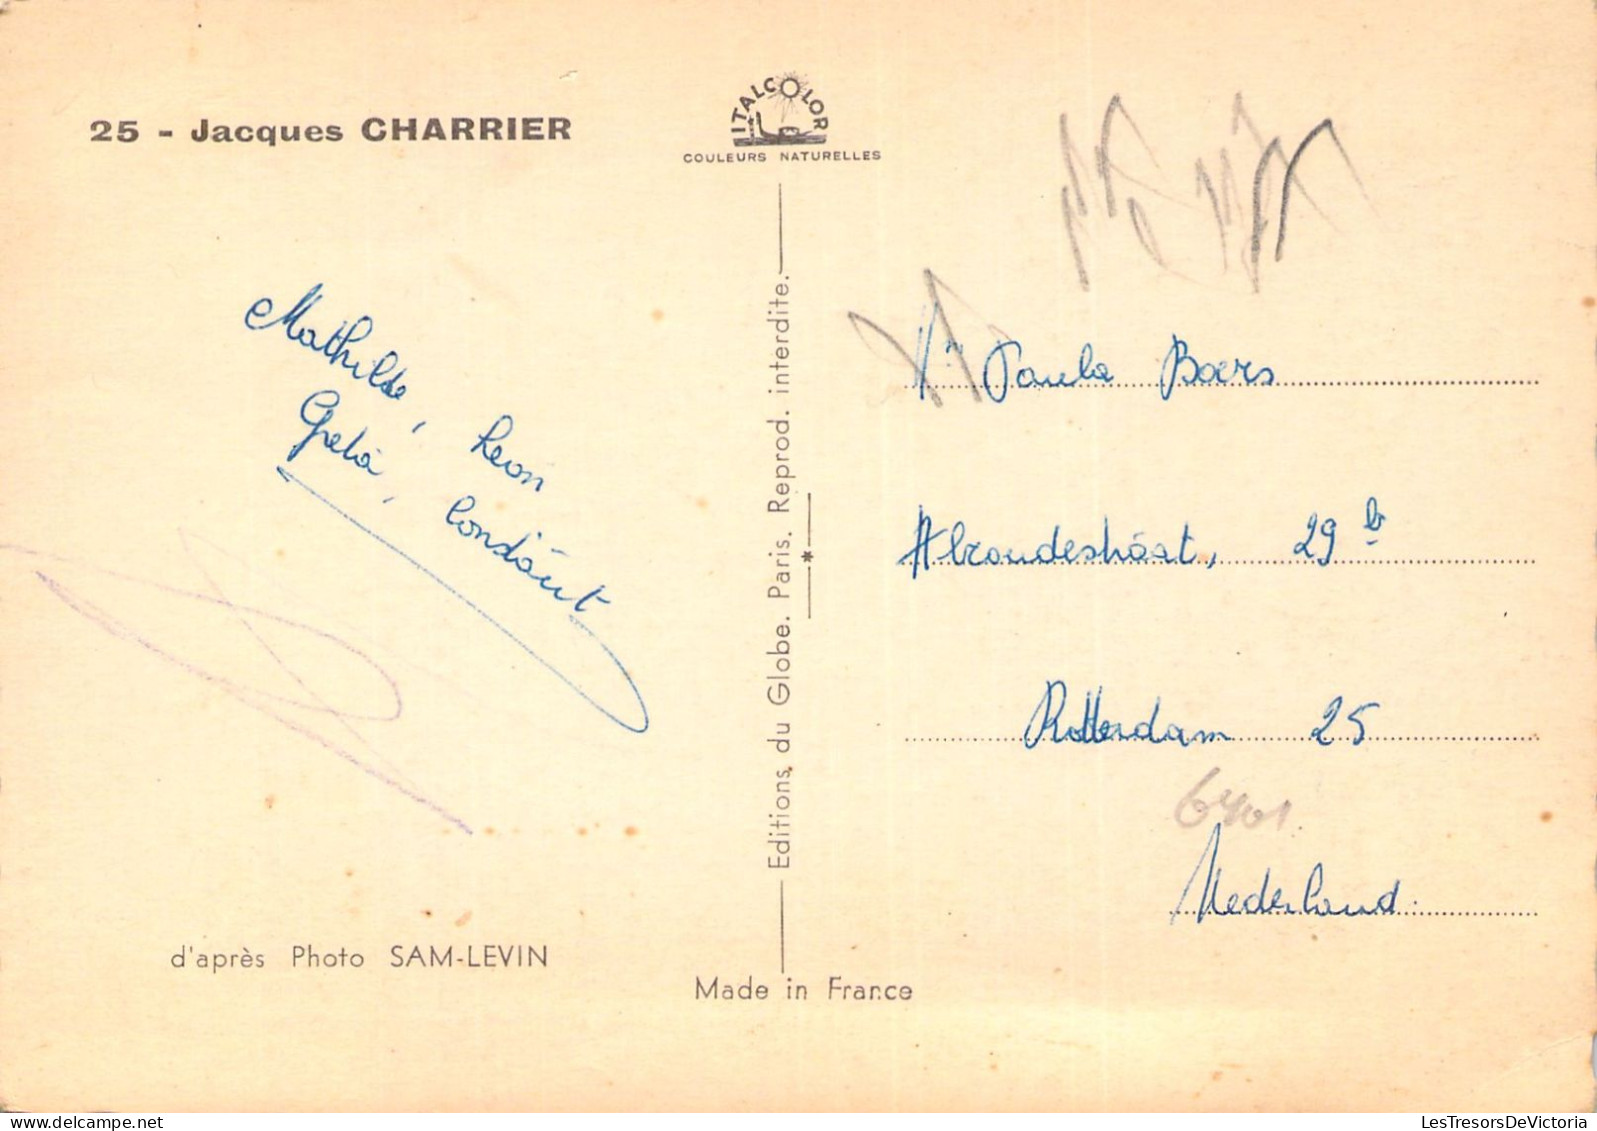 25 - Jacques CHARRIER
ITALCOLOR
COULEURS NATURELLES
Mathilde, Leon
Greta, Constant
d'après Photo SAM-LEVIN
Editions du Globe. Paris. Reprod. interdite.
*
Made in France
Paula Boers
29 b
Rotterdam 25
6401
Nederland.
LesTresorsDeVictoria.com